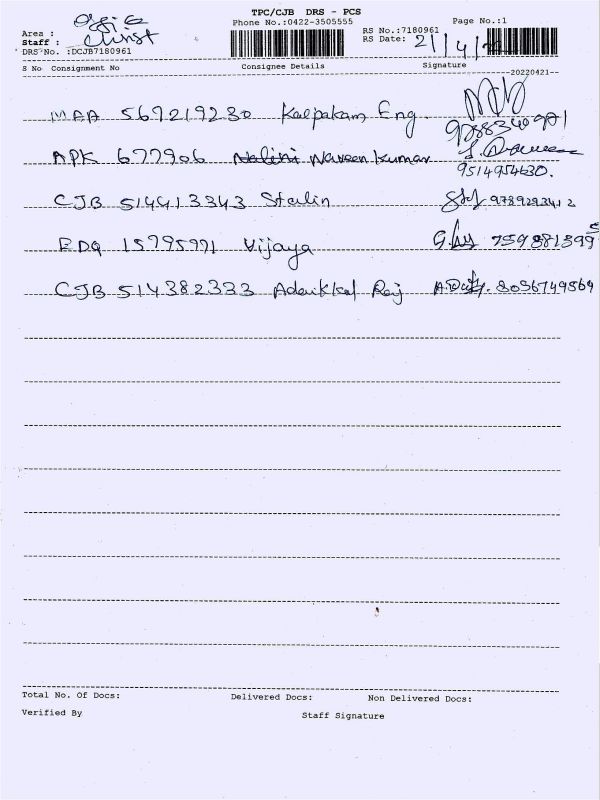 TPC/CJB DRS - PCS
Phone No.:0422-3505555
Page No.:1
Area : Office
Staff : Christ
DRS No. :DCJB7180961
RS No.:7180961
RS Date: 21/4/
S No Consignment No Consignee Details Signature
20220421
MAA 567219230 Kalpakam Eng.
APK 677906 Nalini Naveen Kumar
9514954630.
CJB 514413343 Stalin 9789293412
EDQ 15795971 Vijaya 7598813995
CJB 514382333 Adaikkal Raj 8056749569
Total No. Of Docs: Delivered Docs: Non Delivered Docs:
Verified By Staff Signature